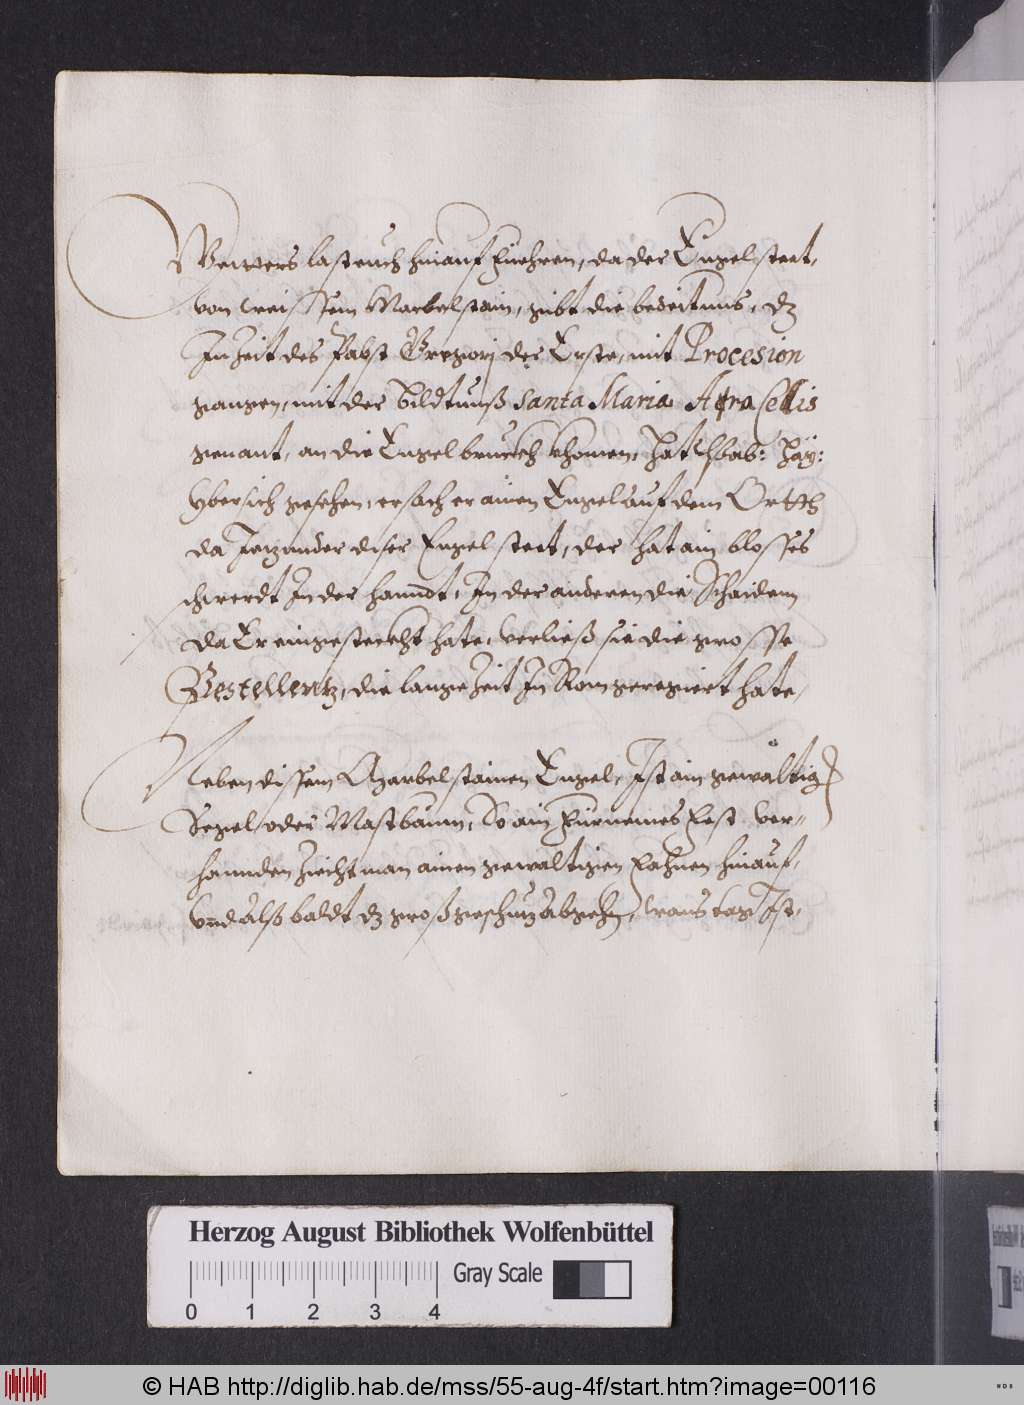 Weitters last euch hinauf füehren, da der Engel steet,
von weissem Marbelstain, gibt die bedeitung, dz
In Zeit des Pabst Gregorj der Erste, mit Procesion
gangen, mit der bildtnuß Santa Maria Ara Cellis
genant, an die Engelbruckh khomen, hat Ihr bäb: häy:
Ybersich gesehen, ersach er ainen Engel auf dem Ortth
da Jetzunder diser Engel steet, der hat ain blosses
schwerdt In der hanndt, In der anderen die Schaiden
da Er eingesteckht hate, verließ sie die grosse
Pestellentz, die lange Zeit In Rom geregiert hate,
Neben dissem Marbelstainen Engel, Ist ain gewaltig
Segel oder Mastbaum, So ain fürnemes Fest ver-
hannden ziecht man ainen gewaltigen Fahnen hinauf,
Und alß baldt dz groß geschutz abgehn, wans tag Ist,
Herzog August Bibliothek Wolfenbüttel
Gray Scale
0 1 2 3 4
© HAB http://diglib.hab.de/mss/55-aug-4f/start.htm?image=00116